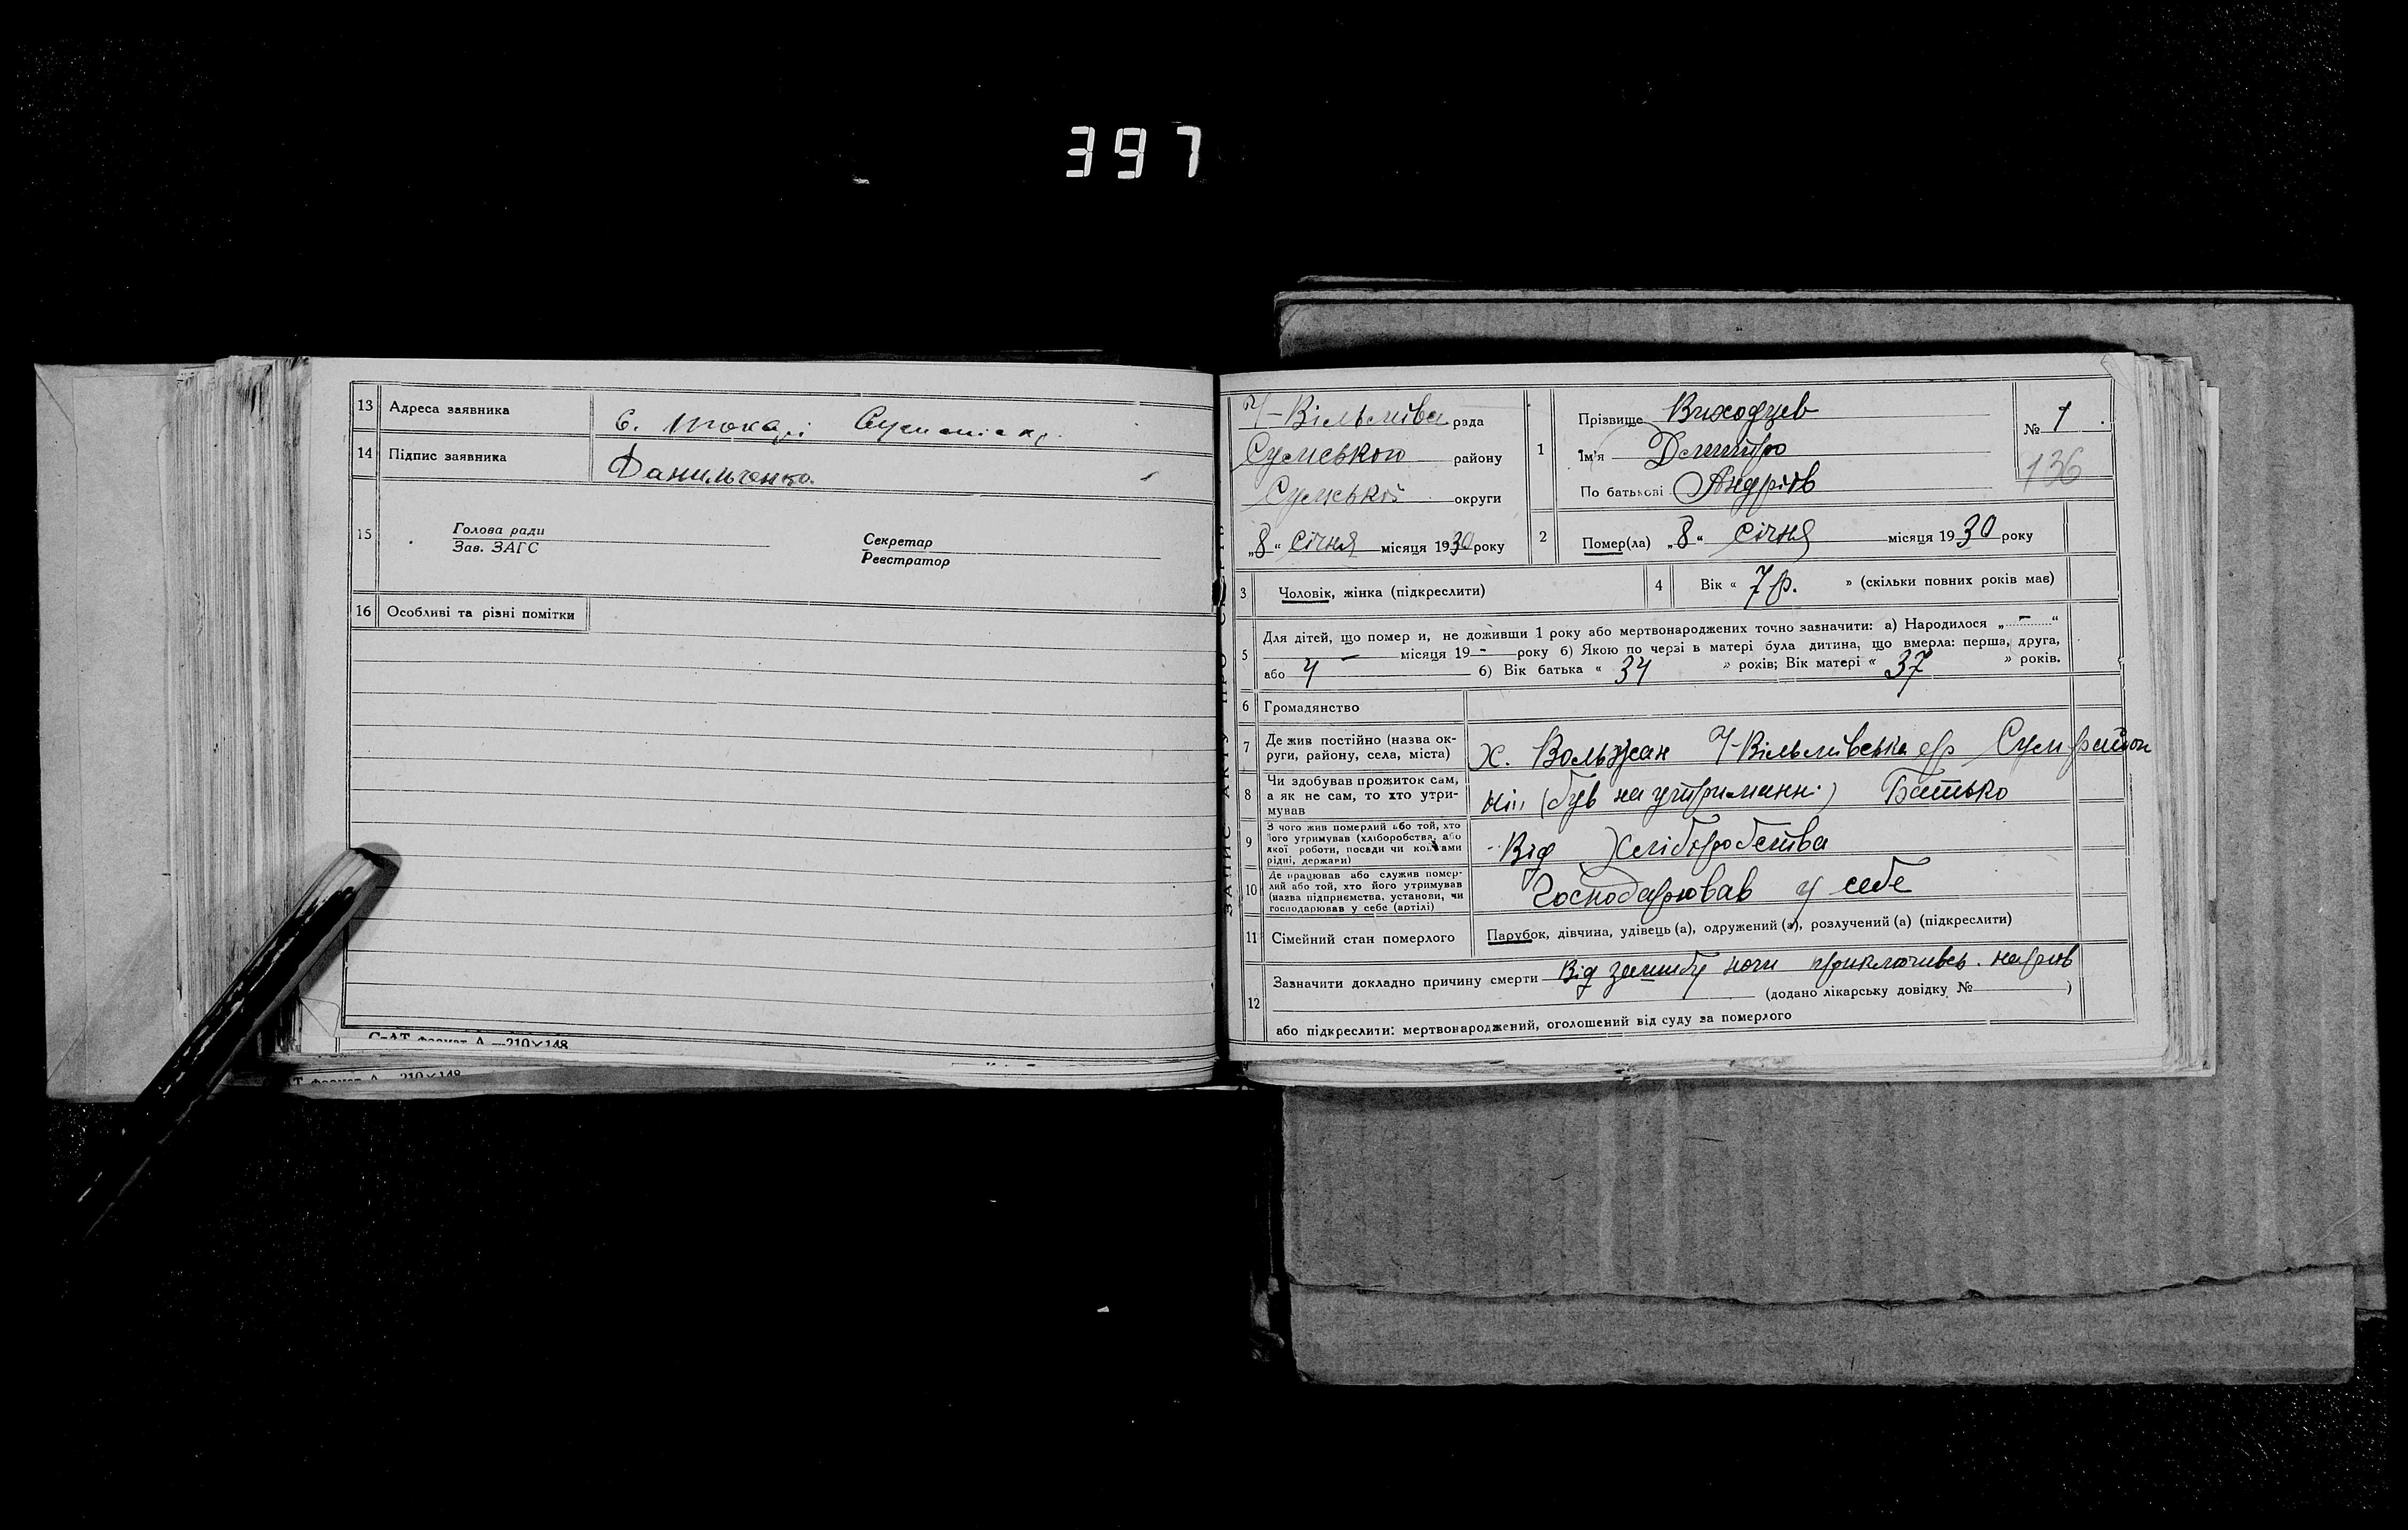 397
13 Адреса заявника С. Токарі Сумський
14 Підпис заявника Данильченко
15 Голова ради
Зав. ЗАГС
Секретар
Реєстратор
16 Особливі та різні помітки
СпАТ формат А —210×148
Т формат А 210×148
ЗАПИС АКТУ ПРО СМЕРТЬ
Ч-Вільмівсь рада
Сумського району
Сумської округи
„8“ січня місяця 1930 року
1 Прізвище Виходцев
Ім'я Дмитро
По батькові Андріїв
№ 1
136
2 Помер(ла) „8“ січня місяця 1930 року
3 Чоловік, жінка (підкреслити)
4 Вік « 7 р. » (скільки повних років має)
5 Для дітей, що померли, не доживши 1 року або мертвонароджених точно зазначити: а) Народилося „ - “
— місяця 19 - року б) Якою по черзі в матері була дитина, що вмерла: перша, друга,
або 4 б) Вік батька « 34 » років; Вік матері « 37 » років.
6 Громадянство
7 Де жив постійно (назва ок-
руги, району, села, міста) х. Вольжан Ч-Вільмівська с/р Сум район
8 Чи здобував прожиток сам,
а як не сам, то хто утри-
мував ні, (був на утриманні) Батько
9 З чого жив померлий або той, хто
його утримував (хліборобства, або
якої роботи, посади чи коштами
рідні, держави) Від Хліборобства
10 Де працював або служив помер-
лий або той, хто його утримував
(назва підприємства, установи, чи
господарював у себе (артілі) Господарював у себе
11 Сімейний стан померлого Парубок, дівчина, удівець (а), одружений (а), розлучений (а) (підкреслити)
12 Зазначити докладно причину смерти Від зашибу ноги приключивсь нарив
(додано лікарську довідку № )
або підкреслити: мертвонароджений, оголошений від суду за померлого